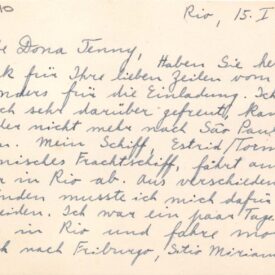 Rio, 15. I
Dona Jenny,
Haben Sie he
k für Ihre lieben Zeilen vom
nders für die Einladung. Ic
ch sehr darüber gefreut, kan
der nicht mehr nach São Pau
en. Mein Schiff, Estrid/Torm
nisches Frachtschiff, fährt am
r in Rio ab. Aus verschieden
nden musste ich mich dafür
eiden. Ich war ein paar Tage
in Rio und fahre mo
ch nach Friburgo, Sitio Miriam